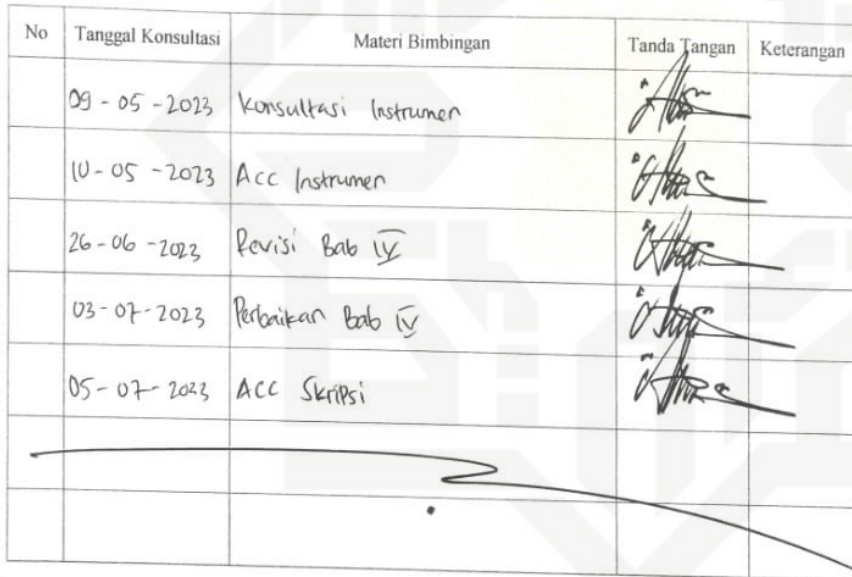 No Tanggal Konsultasi Materi Bimbingan Tanda Tangan Keterangan
09-05-2023 Konsultasi Instrumen
10-05-2023 Acc Instrumen
26-06-2023 Revisi Bab IV
03-07-2023 Perbaikan Bab IV
05-07-2023 ACC Skripsi